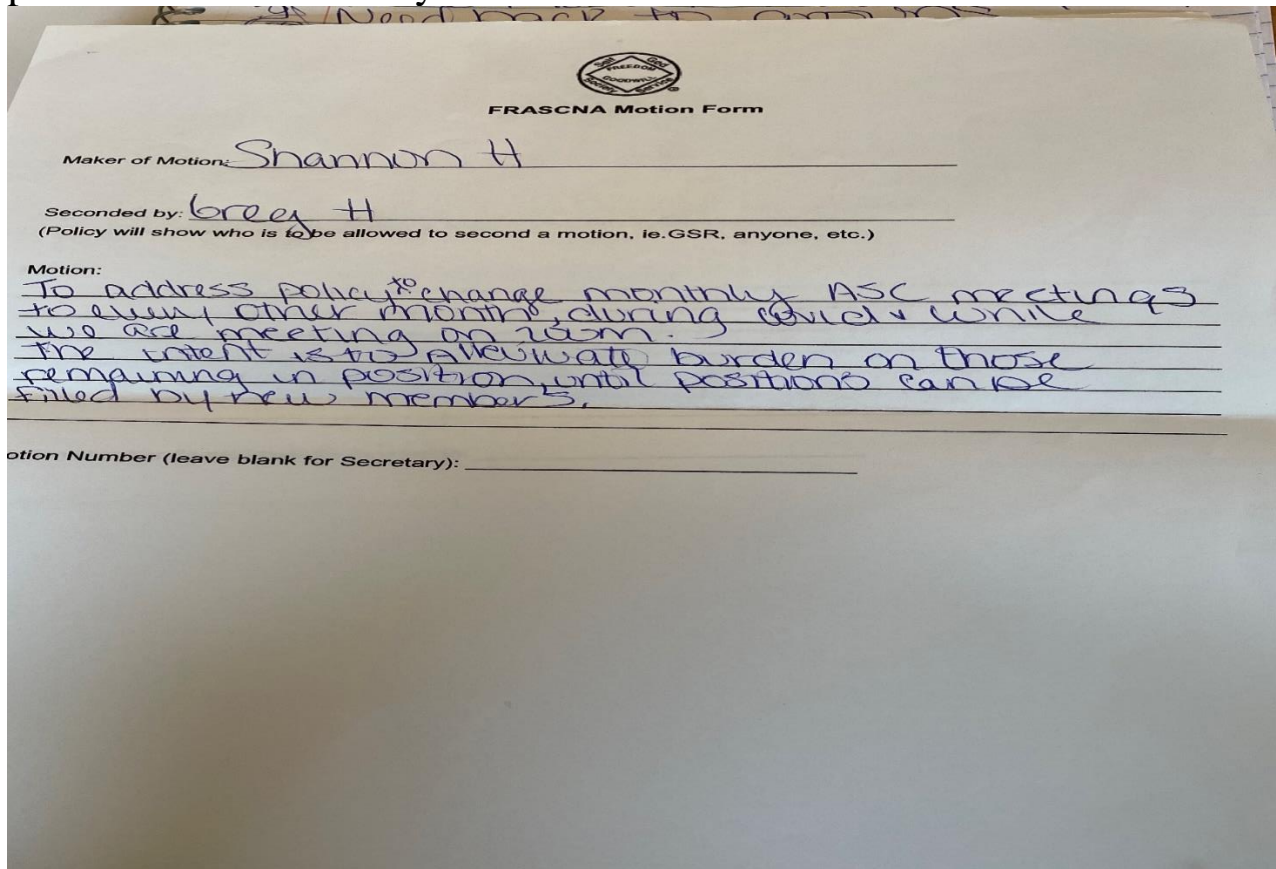 Need back to
Self God
FREEDOM
GOODWILL
Society Service
FRASCNA Motion Form
Maker of Motion: Shannon H
Seconded by: Greg H
(Policy will show who is to be allowed to second a motion, ie.GSR, anyone, etc.)
Motion:
To address policy to change monthly ASC meetings
to every other month, during covid & while
we are meeting on zoom.
The intent is to Alleviate burden on those
remaining in position, until positions can be
filled by new members.
otion Number (leave blank for Secretary):